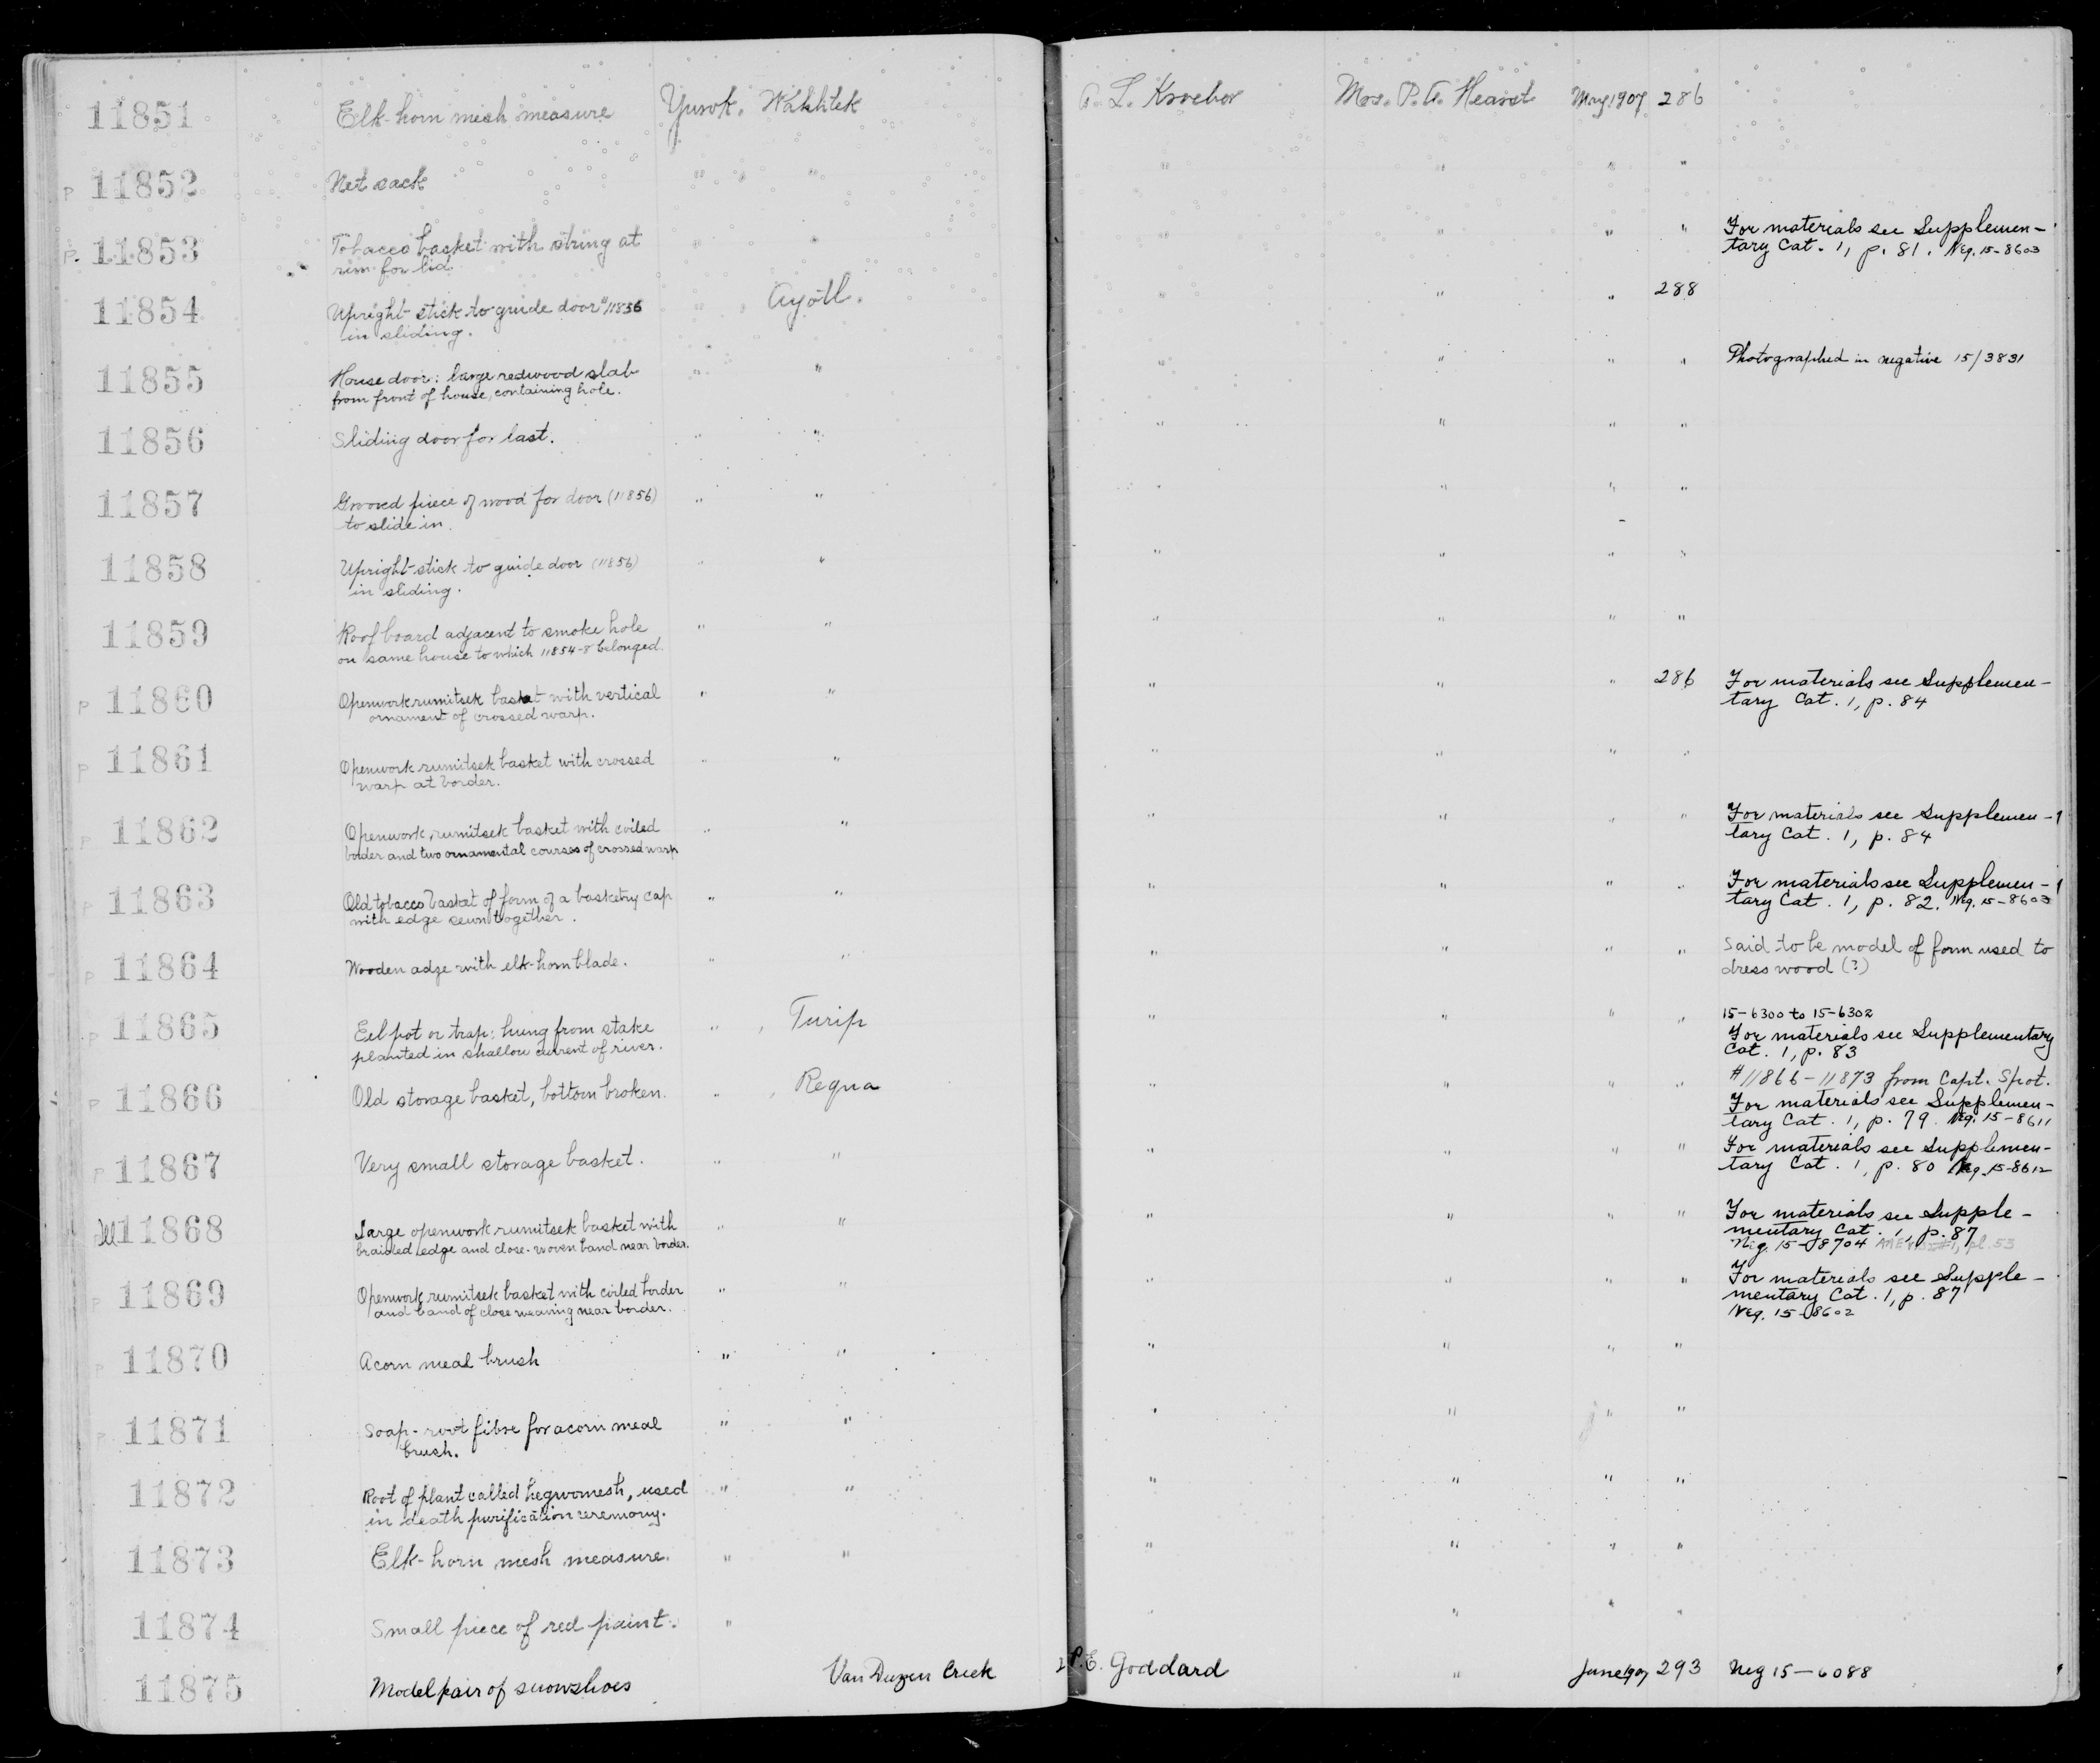 11851 Elk-horn mesh measure Yurok. Wakhtek A. L. Kroeber Mrs. P. A. Hearst May 1907 286
P 11852 Net sack " " " " " "
P. 11853 Tobacco basket with string at " " " " " " For materials see Supplemen-
rim for lid. tary Cat. 1, p. 81. Neg. 15-8603
11854 Upright stick to guide door "11856 " Ayotl. " " " 288
in sliding.
11855 House door: large redwood slab " " " " " " Photographed in negative 15/3831
from front of house, containing hole.
11856 Sliding door for last. " " " " " "
11857 Grooved piece of wood for door (11856) " " " " " "
to slide in.
11858 Upright stick to guide door (11856) " " " " " "
in sliding.
11859 Roof board adjacent to smoke hole " " " " " "
on same house to which 11854-8 belonged.
P 11860 Openwork rumitsek basket with vertical " " " " " 286 For materials see Supplemen-
ornament of crossed warp. tary Cat. 1, p. 84
P 11861 Openwork rumitsek basket with crossed " " " " " "
warp at border.
P 11862 Openwork rumitsek basket with coiled " " " " " " For materials see Supplemen-
border and two ornamental courses of crossed warp tary Cat. 1, p. 84
P 11863 Old tobacco basket of form of a basketry cap " " " " " " For materials see Supplemen-
with edge sewn together. tary Cat. 1, p. 82. Neg. 15-8603
P 11864 Wooden adze with elk-horn blade. " " " " " " Said to be model of form used to
dress wood (?)
P 11865 Eel pot or trap: hung from stake " , Turip " " " " 15-6300 to 15-6302
planted in shallow current of river. For materials see Supplementary
Cat. 1, p. 83
P 11866 Old storage basket, bottom broken. " , Requa " " " " #11866-11873 from Capt. Spot.
For materials see Supplemen-
tary Cat. 1, p. 79. Neg. 15-8611
P 11867 Very small storage basket. " " " " " " For materials see Supplemen-
tary Cat. 1, p. 80 Neg. 15-8612
11868 Large openwork rumitsek basket with " " " " " " For materials see Supple-
braided edge and close-woven band near border. mentary Cat. 1, p. 87
Neg. 15-8704 pl. 53
P 11869 Openwork rumitsek basket with coiled border " " " " " " For materials see Supple-
and band of close weaving near border. mentary Cat. 1, p. 87
Neg. 15-8602
P 11870 Acorn meal brush " " " " " "
P 11871 Soap-root fibre for acorn meal " " " " " "
brush.
11872 Root of plant called hegwomesh, used " " " " " "
in death purification ceremony.
11873 Elk-horn mesh measure. " " " " " "
11874 Small piece of red paint. " " " " "
11875 Model pair of snowshoes Van Duzen Creek P. E. Goddard " June 1907 293 Neg 15-6088